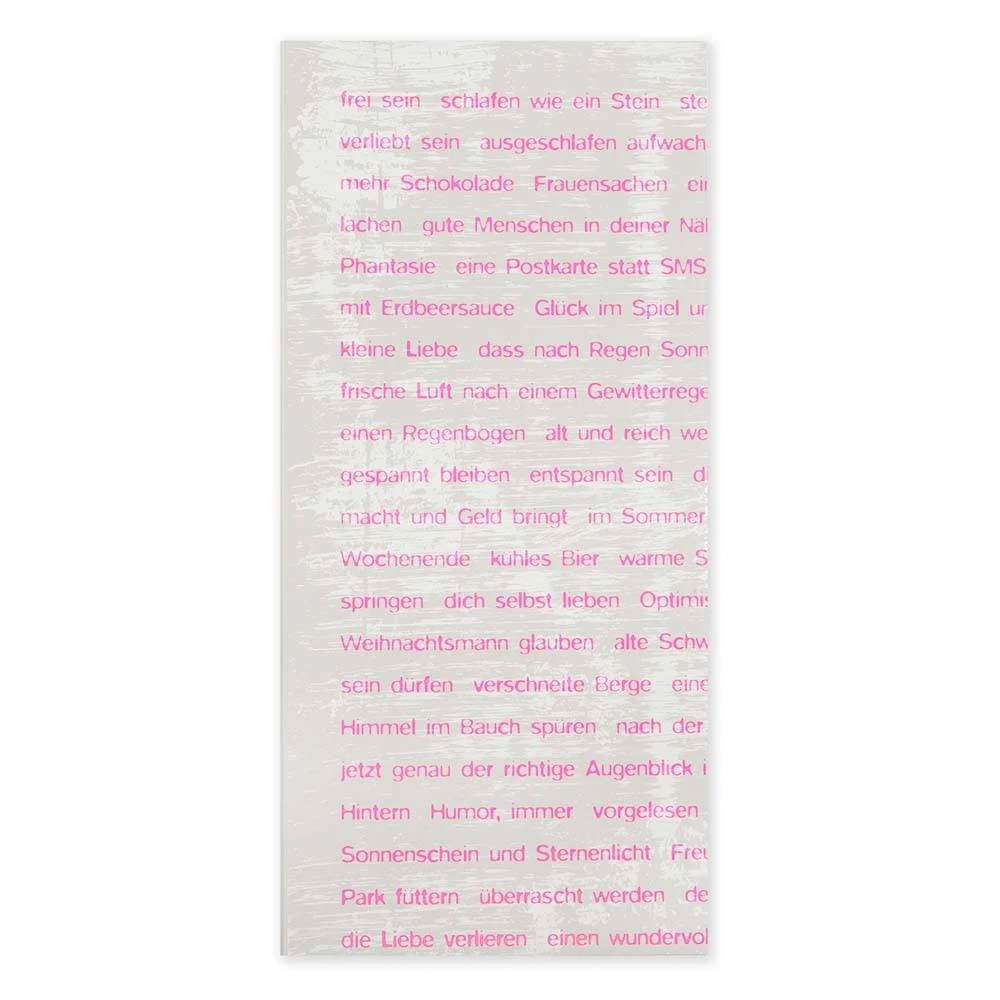 frei sein schlafen wie ein Stein ste
verliebt sein ausgeschlafen aufwach
mehr Schokolade Frauensachen ein
lachen gute Menschen in deiner Näh
Phantasie eine Postkarte statt SMS
mit Erdbeersauce Glück im Spiel un
kleine Liebe dass nach Regen Sonn
frische Luft nach einem Gewitterrege
einen Regenbogen alt und reich we
gespannt bleiben entspannt sein d
macht und Geld bringt im Sommer
Wochenende kühles Bier warme S
springen dich selbst lieben Optimis
Weihnachtsmann glauben alte Schw
sein dürfen verschneite Berge eine
Himmel im Bauch spüren nach der
jetzt genau der richtige Augenblick i
Hintern Humor, immer vorgelesen
Sonnenschein und Sternenlicht Freu
Park füttern überrascht werden de
die Liebe verlieren einen wundervol